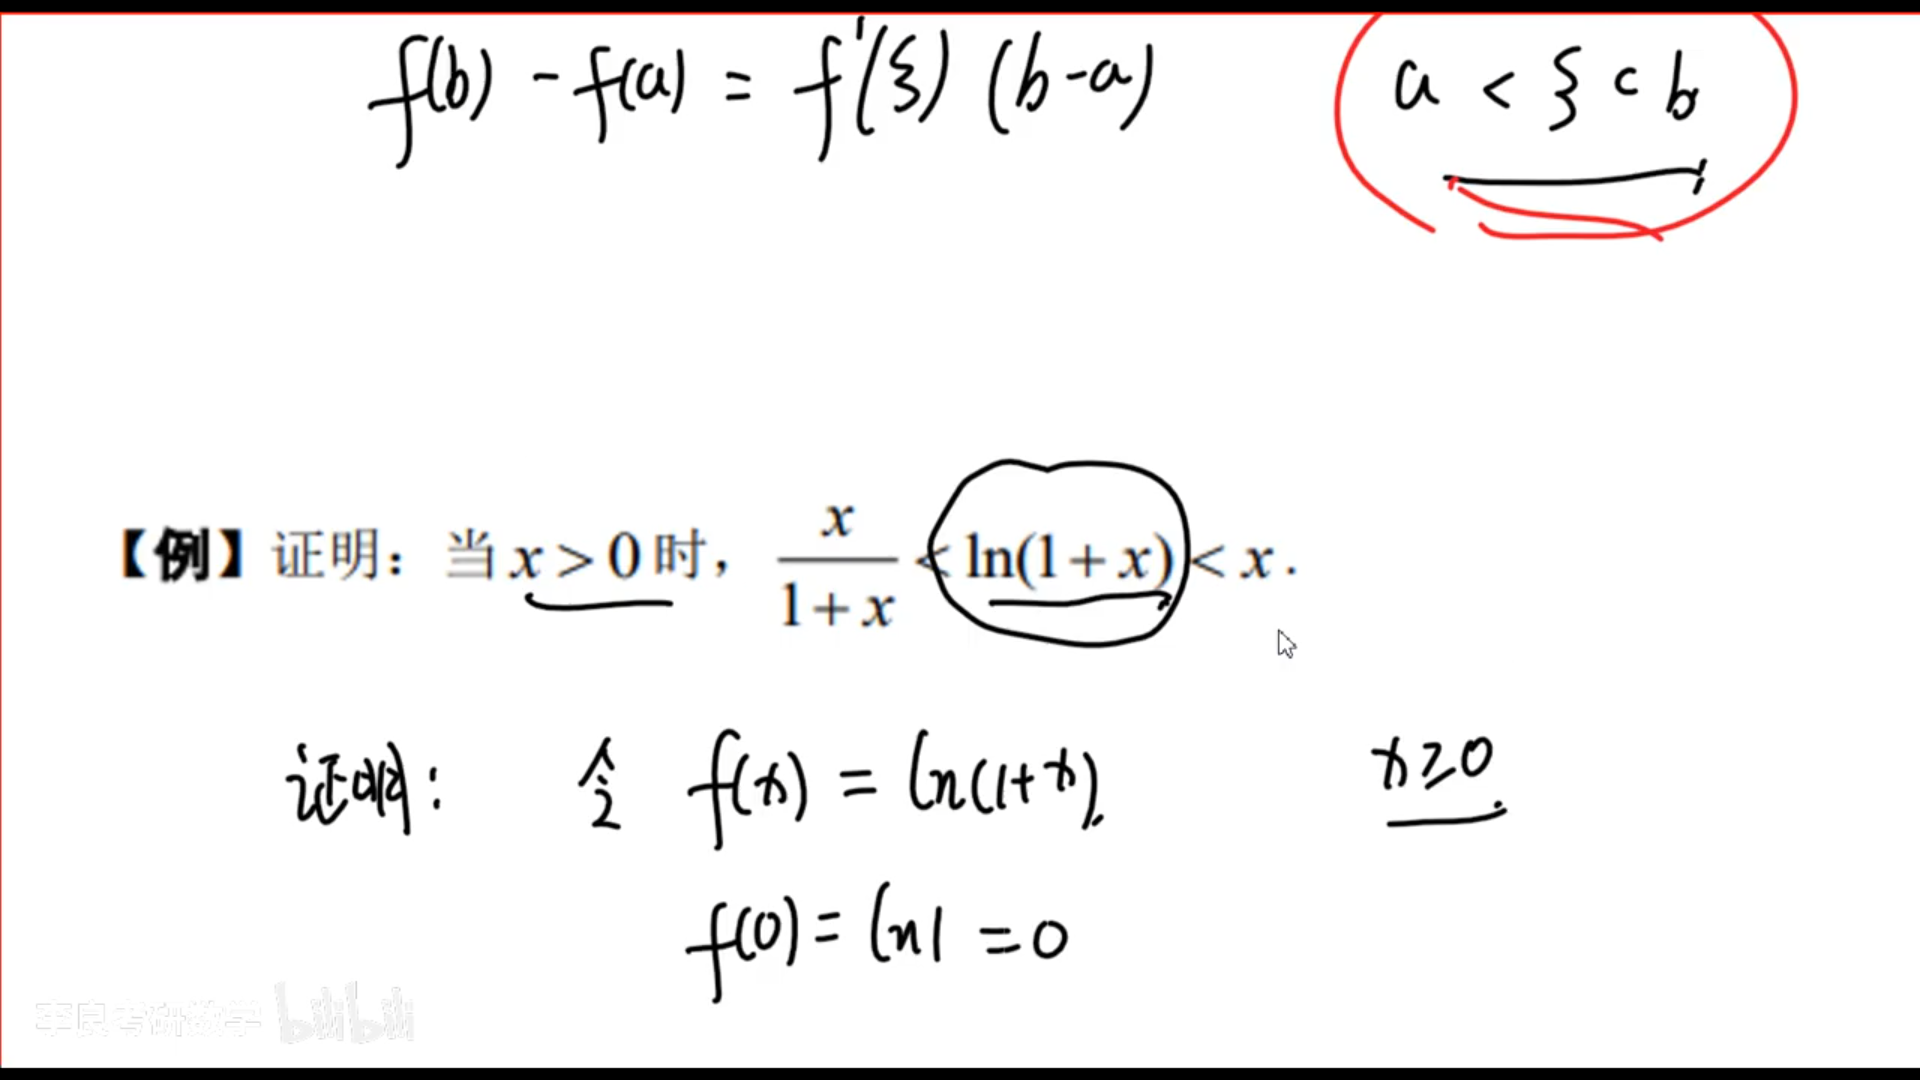 f(b) - f(a) = f'(ξ) (b-a) a < ξ < b
【例】证明：当 x > 0 时， x/(1+x) < ln(1+x) < x .
证明: 令 f(x) = ln(1+x). x≥0
f(0) = ln1 = 0
李良考研数学 bilibili